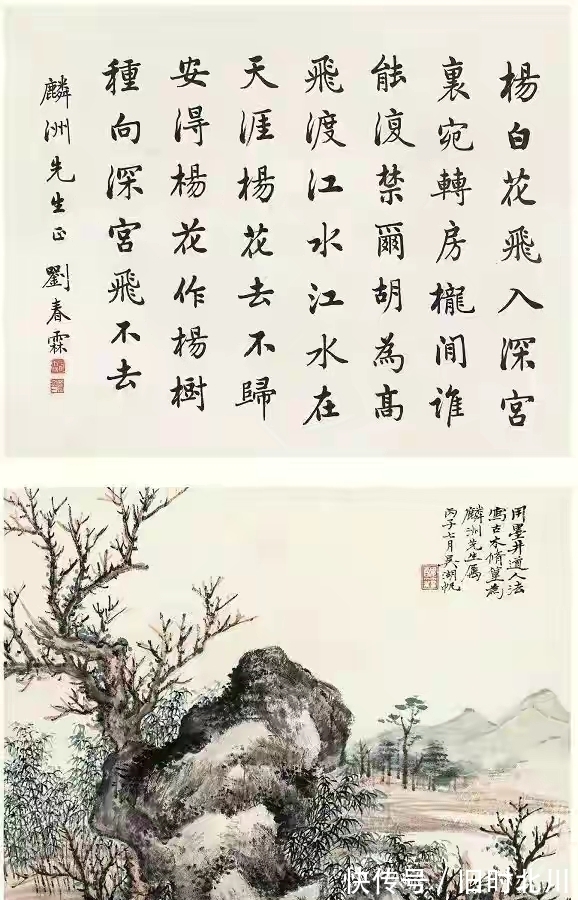 楊白花飛入深宮
裏宛轉房櫳間誰
能復禁爾胡為高
飛渡江水江水在
天涯楊花去不歸
安得楊花作楊樹
種向深宮飛不去
麟洲先生正 劉春霖
用墨井道人法
寫古木脩篁為
麟洲先生屬
丙子七月吳湖帆
快传号/旧时北川